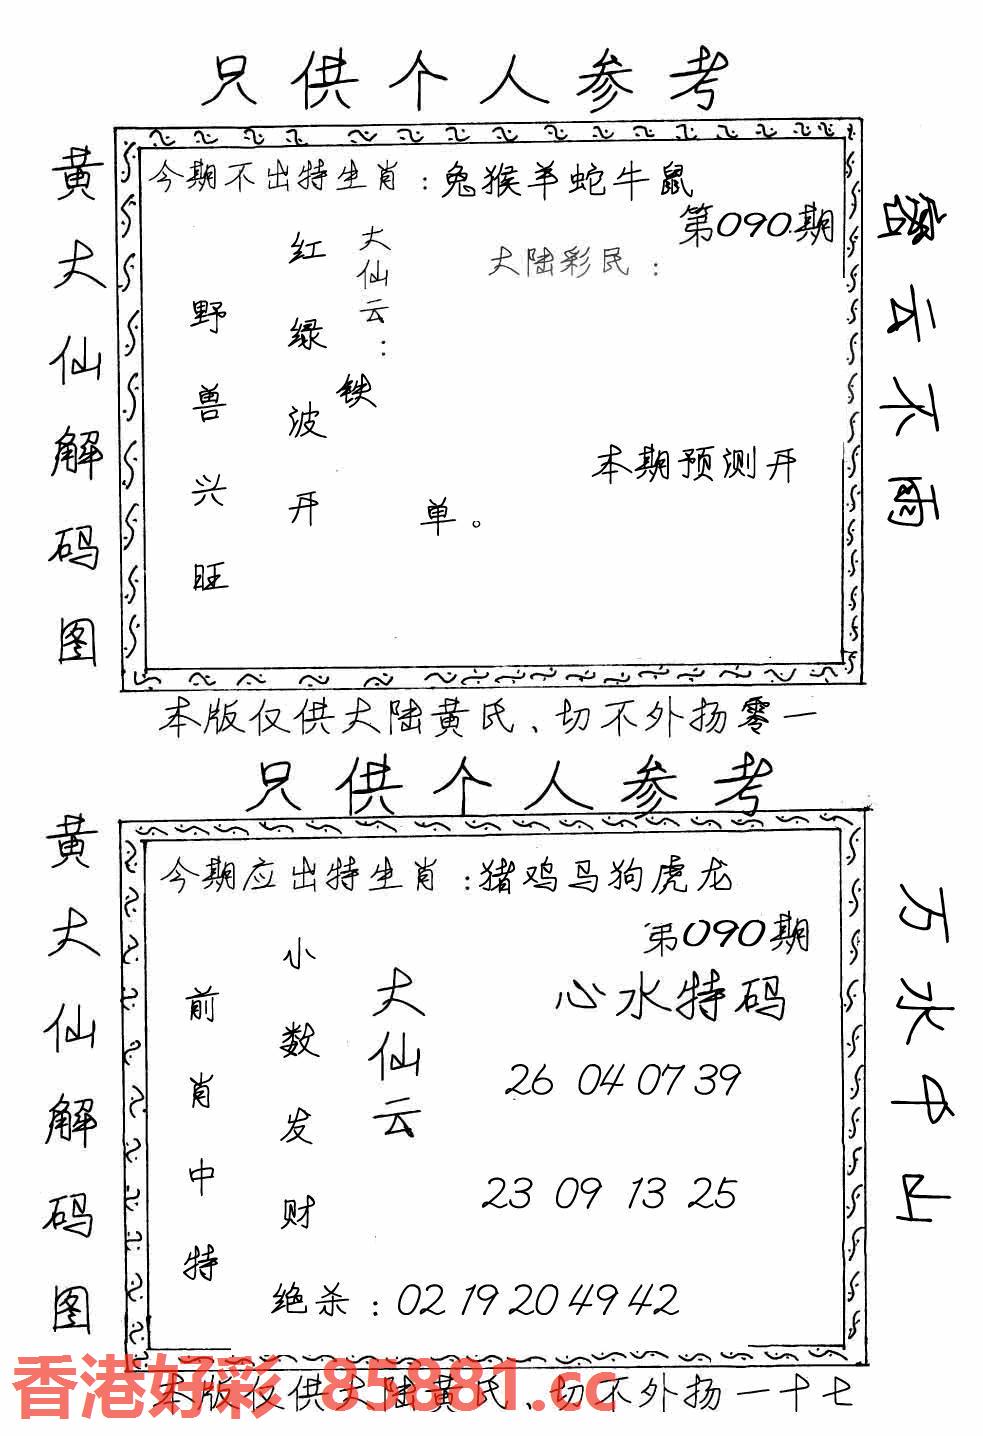 只供个人参考
黄大仙解码图
今期不出特生肖:兔猴羊蛇牛鼠
第090期
大陆彩民:
大仙云:
红绿波开
野兽兴旺
铁
单。
本期预测开
密云不雨
本版仅供大陆黄氏、切不外扬零一
只供个人参考
黄大仙解码图
今期应出特生肖:猪鸡马狗虎龙
第090期
心水特码
大仙云
小数发财
前肖中特
26 04 07 39
23 09 13 25
绝杀:02 19 20 49 42
万水中山
本版仅供大陆黄氏、切不外扬一十七
香港好彩 85881.cc